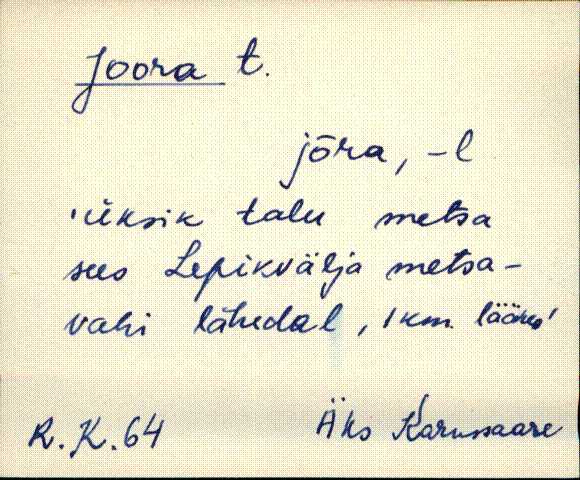 Joora t.
jōra, -l
'üksik talu metsa
sees Lepikvälja metsa-
vahi lähedal, 1 km. läänes'
R. K. 64 Äks Karussaare